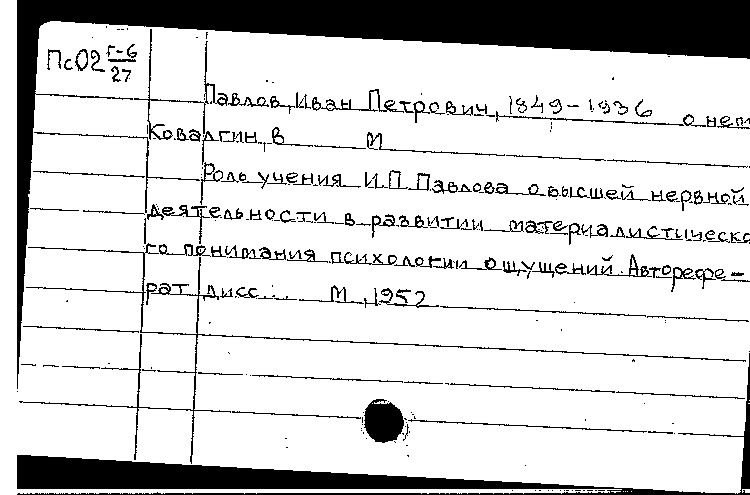 Пс02 Г-6/27
Павлов, Иван Петрович, 1849-1936 о нем
Ковалгин, В М
Роль учения И.П. Павлова о высшей нервной
деятельности в развитии материалистическо
го понимания психологии ощущений. Авторефе-
рат дисс... М., 1952